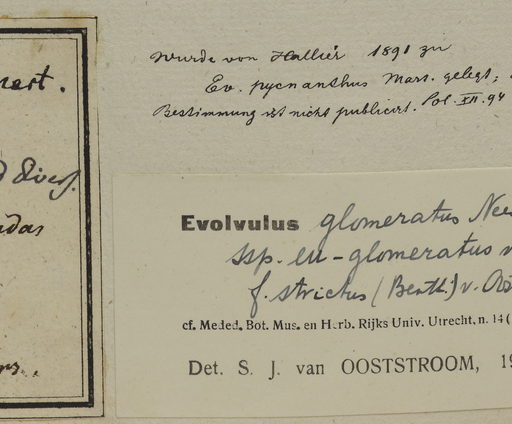 Wurde von Hallier 1891 zu
Ev. pycnanthus Mart. gelegt;
Bestimmung ist nicht publicirt. Sol. XII. 94
Evolvulus glomeratus Nees
ssp. eu-glomeratus v
f. strictus (Benth.) v. Oos
cf. Meded. Bot. Mus. en Herb. Rijks Univ. Utrecht, n. 14 (
Det. S. J. van OOSTSTROOM, 19